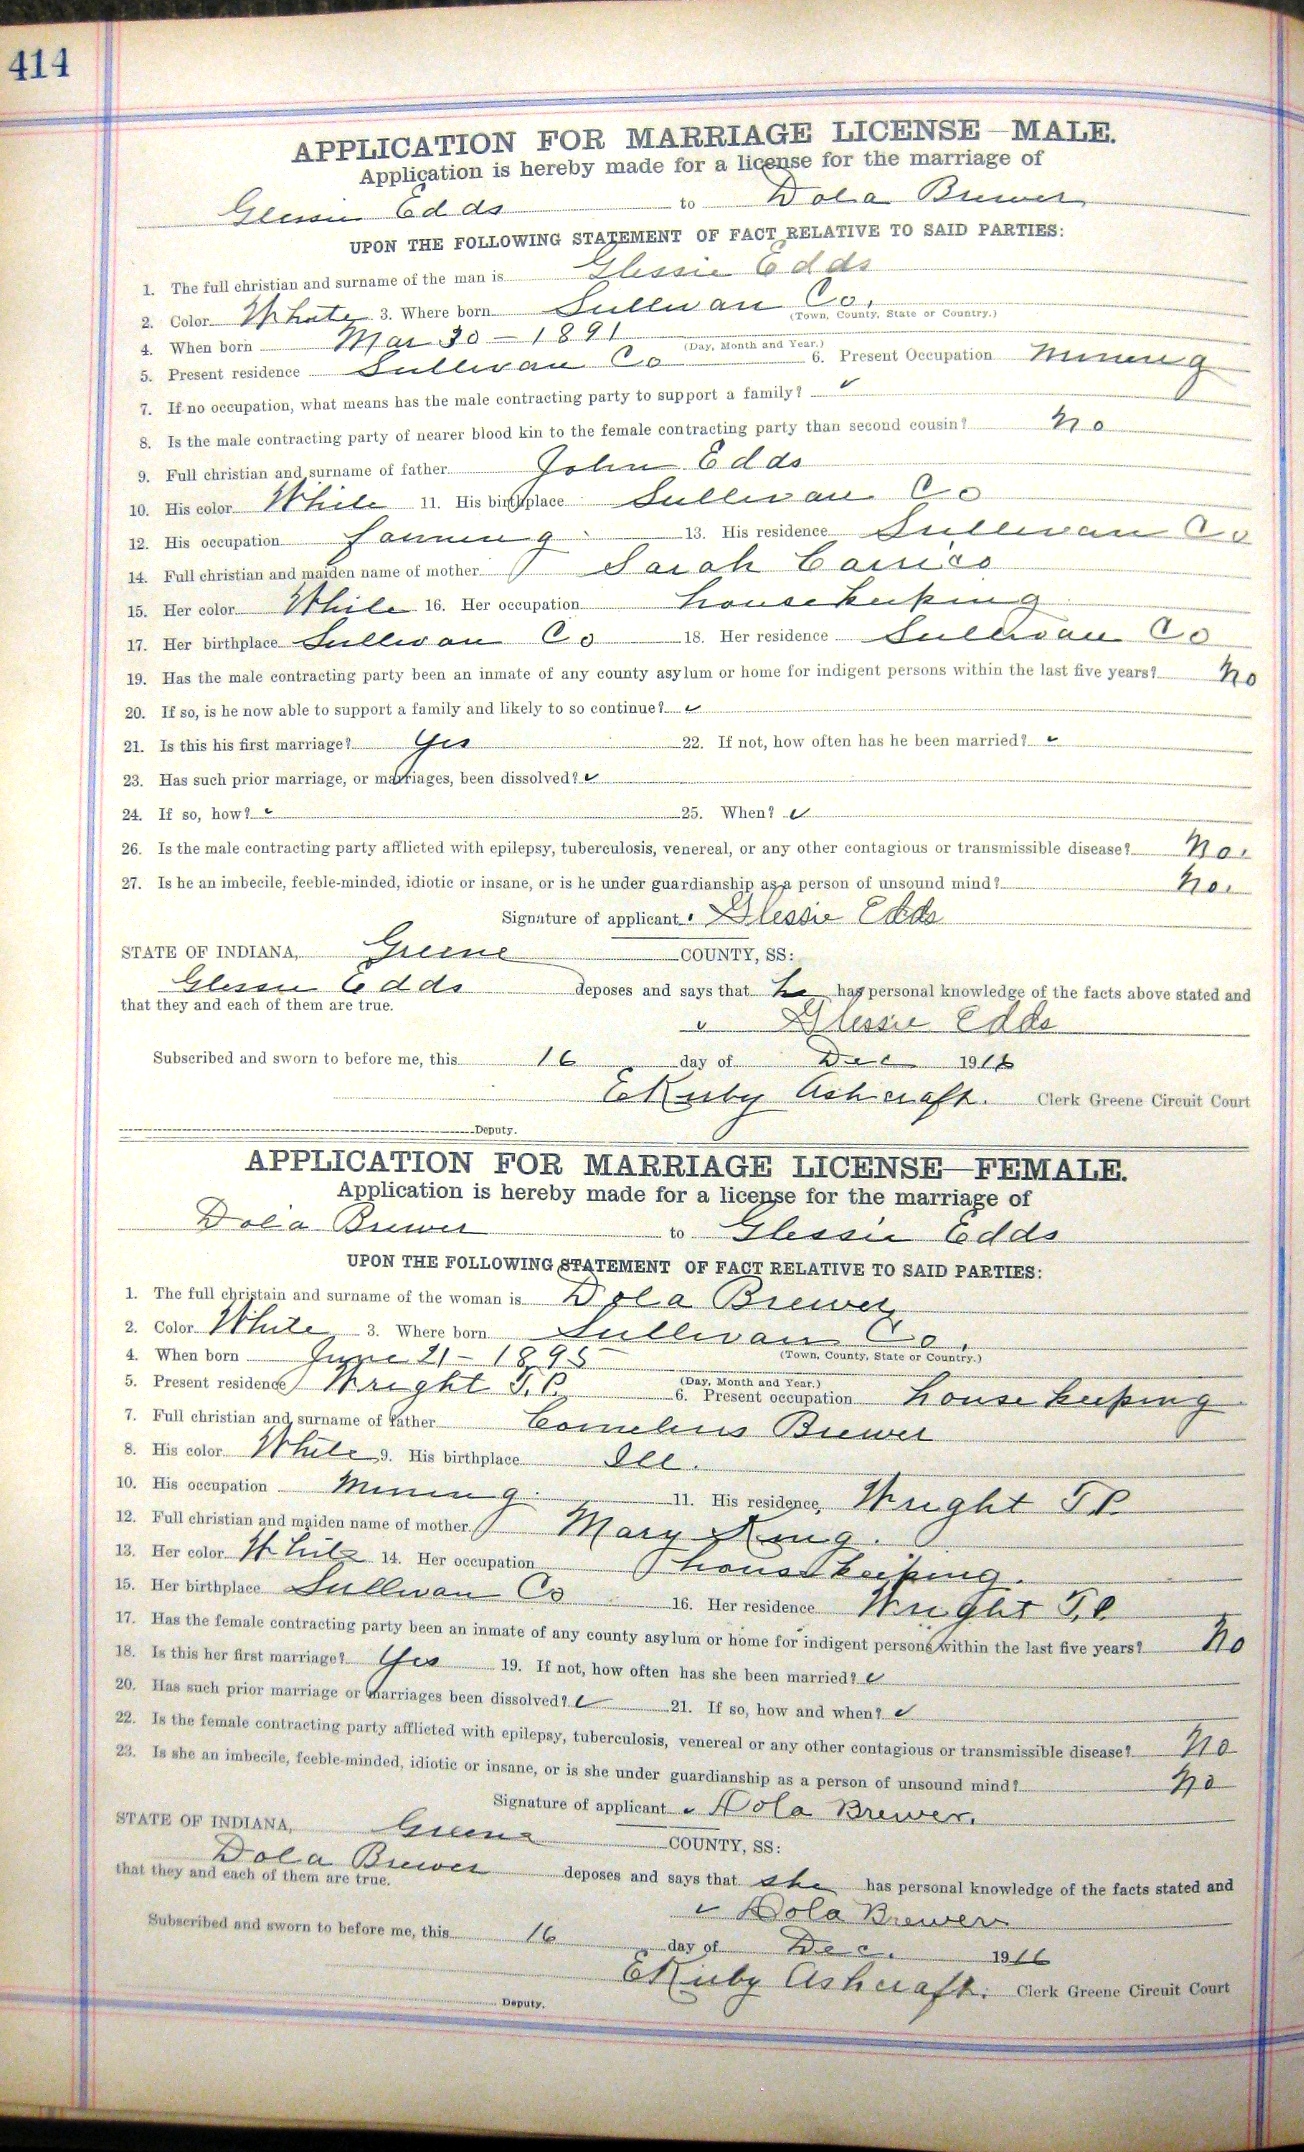 414
APPLICATION FOR MARRIAGE LICENSE—MALE.
Application is hereby made for a license for the marriage of
Glessie Edds to Dola Brewer
UPON THE FOLLOWING STATEMENT OF FACT RELATIVE TO SAID PARTIES:
1. The full christian and surname of the man is Glessie Edds
2. Color White 3. Where born Sullivan Co.
(Town, County, State or Country.)
4. When born Mar 30 - 1891
(Day, Month and Year.)
5. Present residence Sullivan Co 6. Present Occupation Mining
7. If no occupation, what means has the male contracting party to support a family? ✓
8. Is the male contracting party of nearer blood kin to the female contracting party than second cousin? No
9. Full christian and surname of father John Edds
10. His color White 11. His birthplace Sullivan Co
12. His occupation farming 13. His residence Sullivan Co
14. Full christian and maiden name of mother Sarah Carrico
15. Her color White 16. Her occupation housekeeping
17. Her birthplace Sullivan Co 18. Her residence Sullivan Co
19. Has the male contracting party been an inmate of any county asylum or home for indigent persons within the last five years? No
20. If so, is he now able to support a family and likely to so continue? ✓
21. Is this his first marriage? Yes 22. If not, how often has he been married? ✓
23. Has such prior marriage, or marriages, been dissolved? ✓
24. If so, how? ✓ 25. When? ✓
26. Is the male contracting party afflicted with epilepsy, tuberculosis, venereal, or any other contagious or transmissible disease? No.
27. Is he an imbecile, feeble-minded, idiotic or insane, or is he under guardianship as a person of unsound mind? No.
Signature of applicant Glessie Edds
STATE OF INDIANA, Greene COUNTY, SS:
Glessie Edds deposes and says that he has personal knowledge of the facts above stated and
that they and each of them are true.
✓ Glessie Edds
Subscribed and sworn to before me, this 16 day of Dec 1916
E Kirby Ashcraft. Clerk Greene Circuit Court
Deputy.
APPLICATION FOR MARRIAGE LICENSE—FEMALE.
Application is hereby made for a license for the marriage of
Dola Brewer to Glessie Edds
UPON THE FOLLOWING STATEMENT OF FACT RELATIVE TO SAID PARTIES:
1. The full christain and surname of the woman is Dola Brewer
2. Color White 3. Where born Sullivan Co.
(Town, County, State or Country.)
4. When born June 21 - 1895
(Day, Month and Year.)
5. Present residence Wright T.P. 6. Present occupation housekeeping
7. Full christian and surname of father Cornelius Brewer
8. His color White 9. His birthplace Ill.
10. His occupation Mining. 11. His residence, Wright T.P.
12. Full christian and maiden name of mother Mary King.
13. Her color White 14. Her occupation housekeeping.
15. Her birthplace Sullivan Co 16. Her residence Wright T.P.
17. Has the female contracting party been an inmate of any county asylum or home for indigent persons within the last five years? No
18. Is this her first marriage? Yes 19. If not, how often has she been married? ✓
20. Has such prior marriage or marriages been dissolved? ✓ 21. If so, how and when? ✓
22. Is the female contracting party afflicted with epilepsy, tuberculosis, venereal or any other contagious or transmissible disease? No
23. Is she an imbecile, feeble-minded, idiotic or insane, or is she under guardianship as a person of unsound mind? No
Signature of applicant ✓ Dola Brewer.
STATE OF INDIANA, Greene COUNTY, SS:
Dola Brewer deposes and says that she has personal knowledge of the facts stated and
that they and each of them are true.
✓ Dola Brewer
Subscribed and sworn to before me, this 16 day of Dec. 1916
E Kirby Ashcraft. Clerk Greene Circuit Court
Deputy.